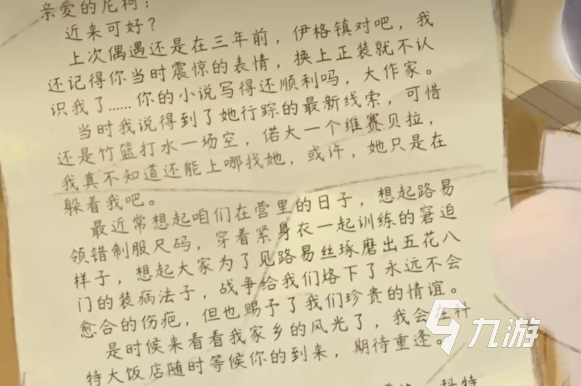 亲爱的尼柯：
近来可好？
上次偶遇还是在三年前，伊格镇对吧，我
还记得你当时震惊的表情，换上正装就不认
识我了……你的小说写得还顺利吗，大作家。
当时我说得到了她行踪的最新线索，可惜
还是竹篮打水一场空，偌大一个维赛贝拉，
我真不知道还能上哪找她，或许，她只是在
躲着我吧。
最近常想起咱们在营里的日子，想起路易
领错制服尺码，穿着紧身衣一起训练的窘迫
样子，想起大家为了见路易丝琢磨出五花八
门的装病法子，战争给我们烙下了永远不会
愈合的伤疤，但也赐予了我们珍贵的情谊。
是时候来看看我家乡的风光了，我会在什
特大饭店随时等候你的到来，期待重逢。
科特
九游